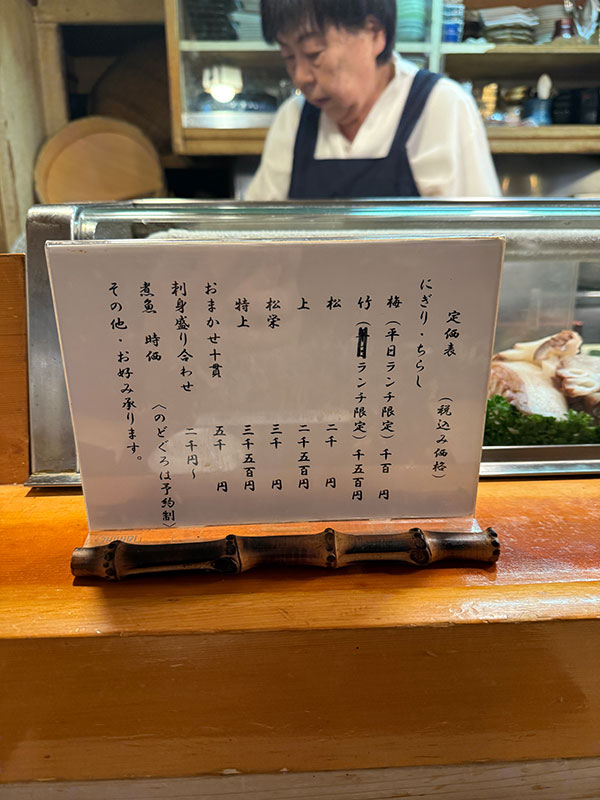 定価表 (税込み価格)
にぎり・ちらし
梅(平日ランチ限定)千百 円
竹(ランチ限定)千五百円
松 二千 円
上 二千五百円
松栄 三千 円
特上 三千五百円
おまかせ十貫 五千 円
刺身盛り合わせ 二千円~
煮魚 時価 〈のどぐろは予約制〉
その他・お好み承ります。